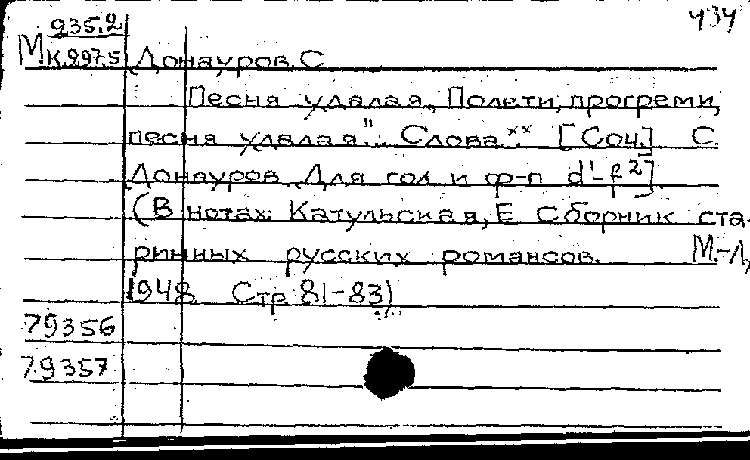 935.2 434
М к.997.5 Донауров С.
Песня удалая. „Полети, прогреми,
песня удалая".. Слова ** [Соч.] С.
Донауров. Для гол и ф-п d¹-f²].
(В нотах: Катульская, Е Сборник ста-
ринных русских романсов. М.-Л.,
1948. Стр. 81-83)
79356
79357